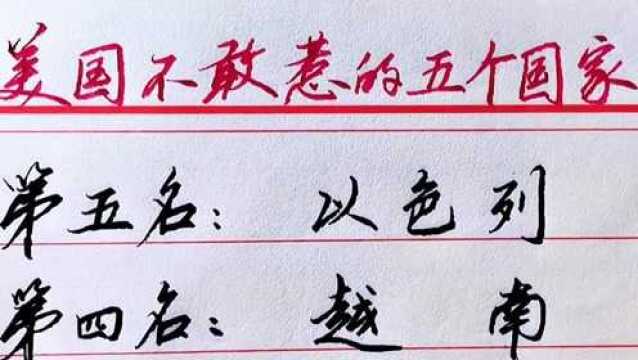 美国不敢惹的五个国家
第五名：以色列
第四名：越南